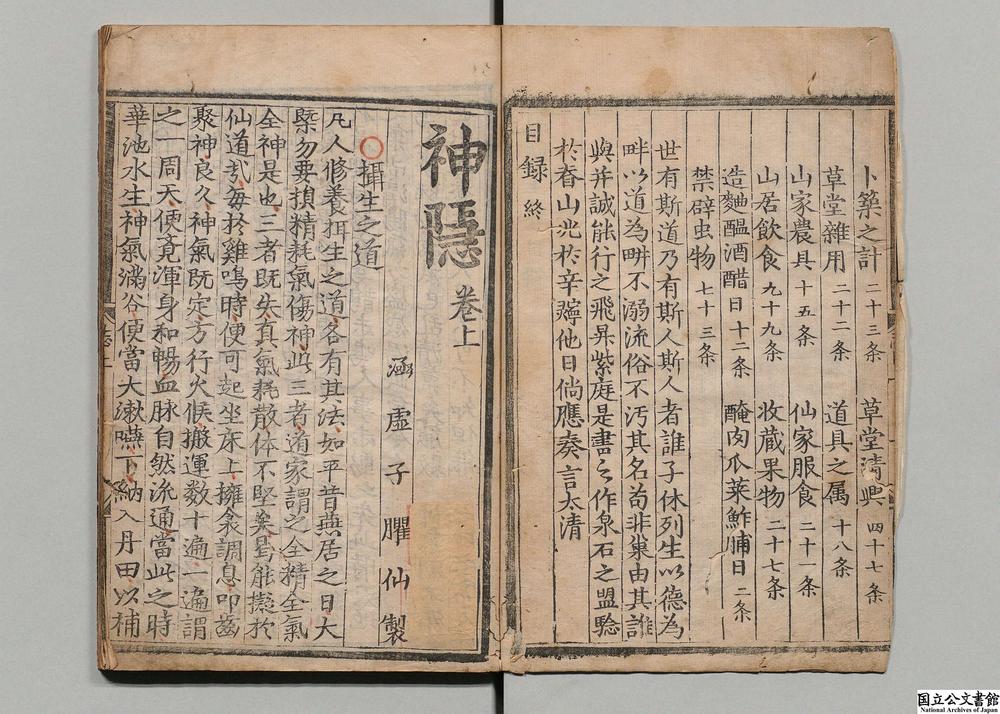 卜築之計 二十三条 草堂清興 四十七条
草堂雜用 二十二条 道具之属 十八条
山家農具 十五条 仙家服食 二十一条
山居飲食 九十九条 收蔵果物 二十七条
造麯醞酒醋日 十二条 醃肉瓜菜鮓脯日 二条
禁辟虫物 七十三条
世有斯道乃有斯人斯人者誰子休列生以德為
畊以道為畊不溺流俗不汚其名苟非巢由其誰
與并誠能行之飛昇紫庭是書之作泉石之盟騐
於眷山兆於辛 他日倘應奏言太清
目録終
神隱 卷上
涵虛子臞仙製
〇攝生之道
凡人修養攝生之道各有其法如平昔燕居之日大
槩勿要損精耗氣傷神此三者道家謂之全精全氣
全神是也三者既失真氣耗散体不堅矣焉能擬於
仙道哉每於雞鳴時便可起坐床上擁衾調息叩齒
聚神良久神氣既定方行火候搬運数十遍一遍謂
之一周天便覺渾身和暢血脉自然流通當此之時
華池水生神氣滿谷便當大漱嚥下納入丹田以補
国立公文書館
National Archives of Japan